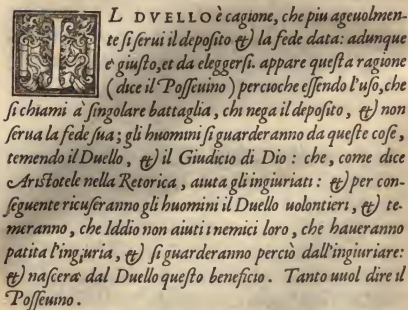 IL DVELLO è cagione, che piu ageuolmen-
te si serui il deposito & la fede data: adunque
e' giusto, et da eleggersi. appare questa ragione
(dice il Posseuino) percioche essendo l'uso, che
si chiami à singolare battaglia, chi nega il deposito, & non
serua la fede sua; gli huomini si guarderanno da queste cose,
temendo il Duello, & il Giudicio di Dio: che, come dice
Aristotele nella Retorica, aiuta gli ingiuriati: & per con-
seguente ricuseranno gli huomini il Duello uolontieri, & te-
meranno, che Iddio non aiuti i nemici loro, che haueranno
patita l'ingiuria, & si guarderanno perciò dall'ingiuriare:
& nascerà dal Duello questo beneficio. Tanto uuol dire il
Posseuino.